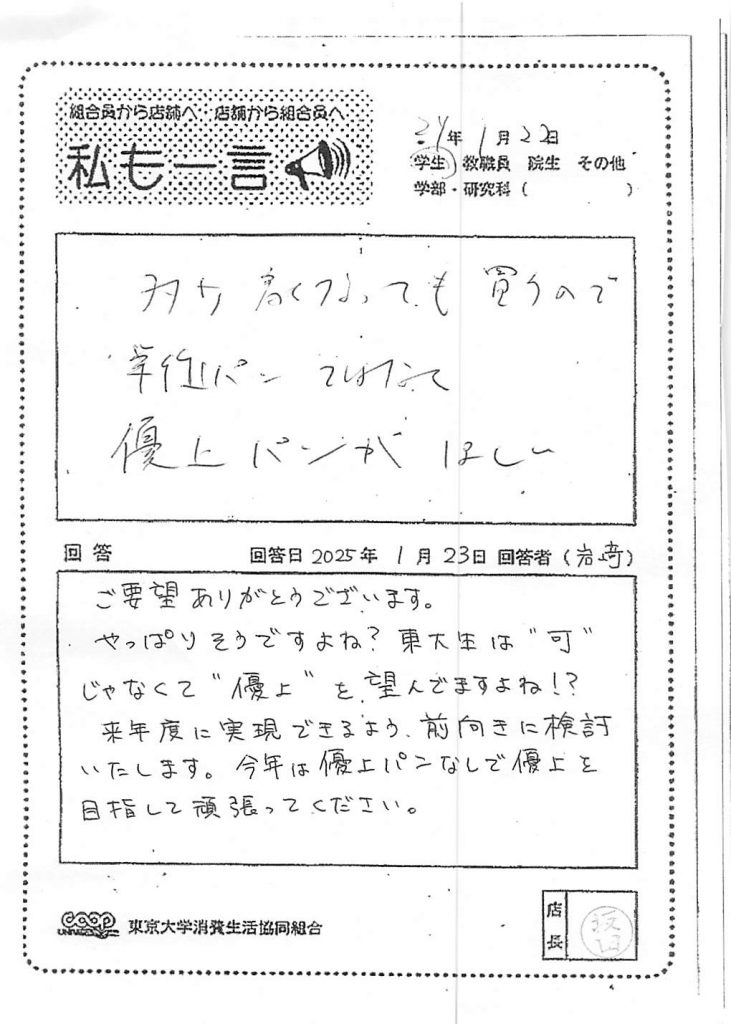 組合員から店舗へ・店舗から組合員へ
私も一言
24年 1月22日
学生 教職員 院生 その他
学部・研究科 ( )
高くなっても買うので
単位パンではなくて
優上パンがほしい
回答 回答日 2025年 1月 23日 回答者 (岩崎)
ご要望ありがとうございます。
やっぱりそうですよね? 東大生は"可"
じゃなくて"優上"を望んでますよね!?
来年度に実現できるよう、前向きに検討
いたします。今年は優上パンなしで優上を
目指して頑張ってください。
coop
東京大学消費生活協同組合
店長